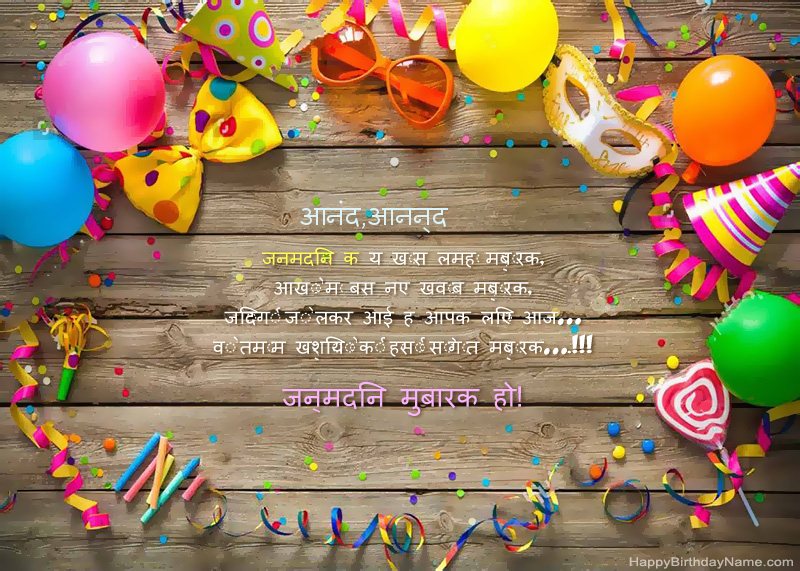 आनंद,आनन्द
जनमदनि क य खास लमहा मबारक,
आखों में बस नए खवाब मबारक,
जदिंगी जो लेकर आई ह आपक लएि आज...
वो तमाम खशयिों की हसीं सौगात मबारक...!!!
जन्मदनि मुबारक हो!
HappyBirthdayName.com